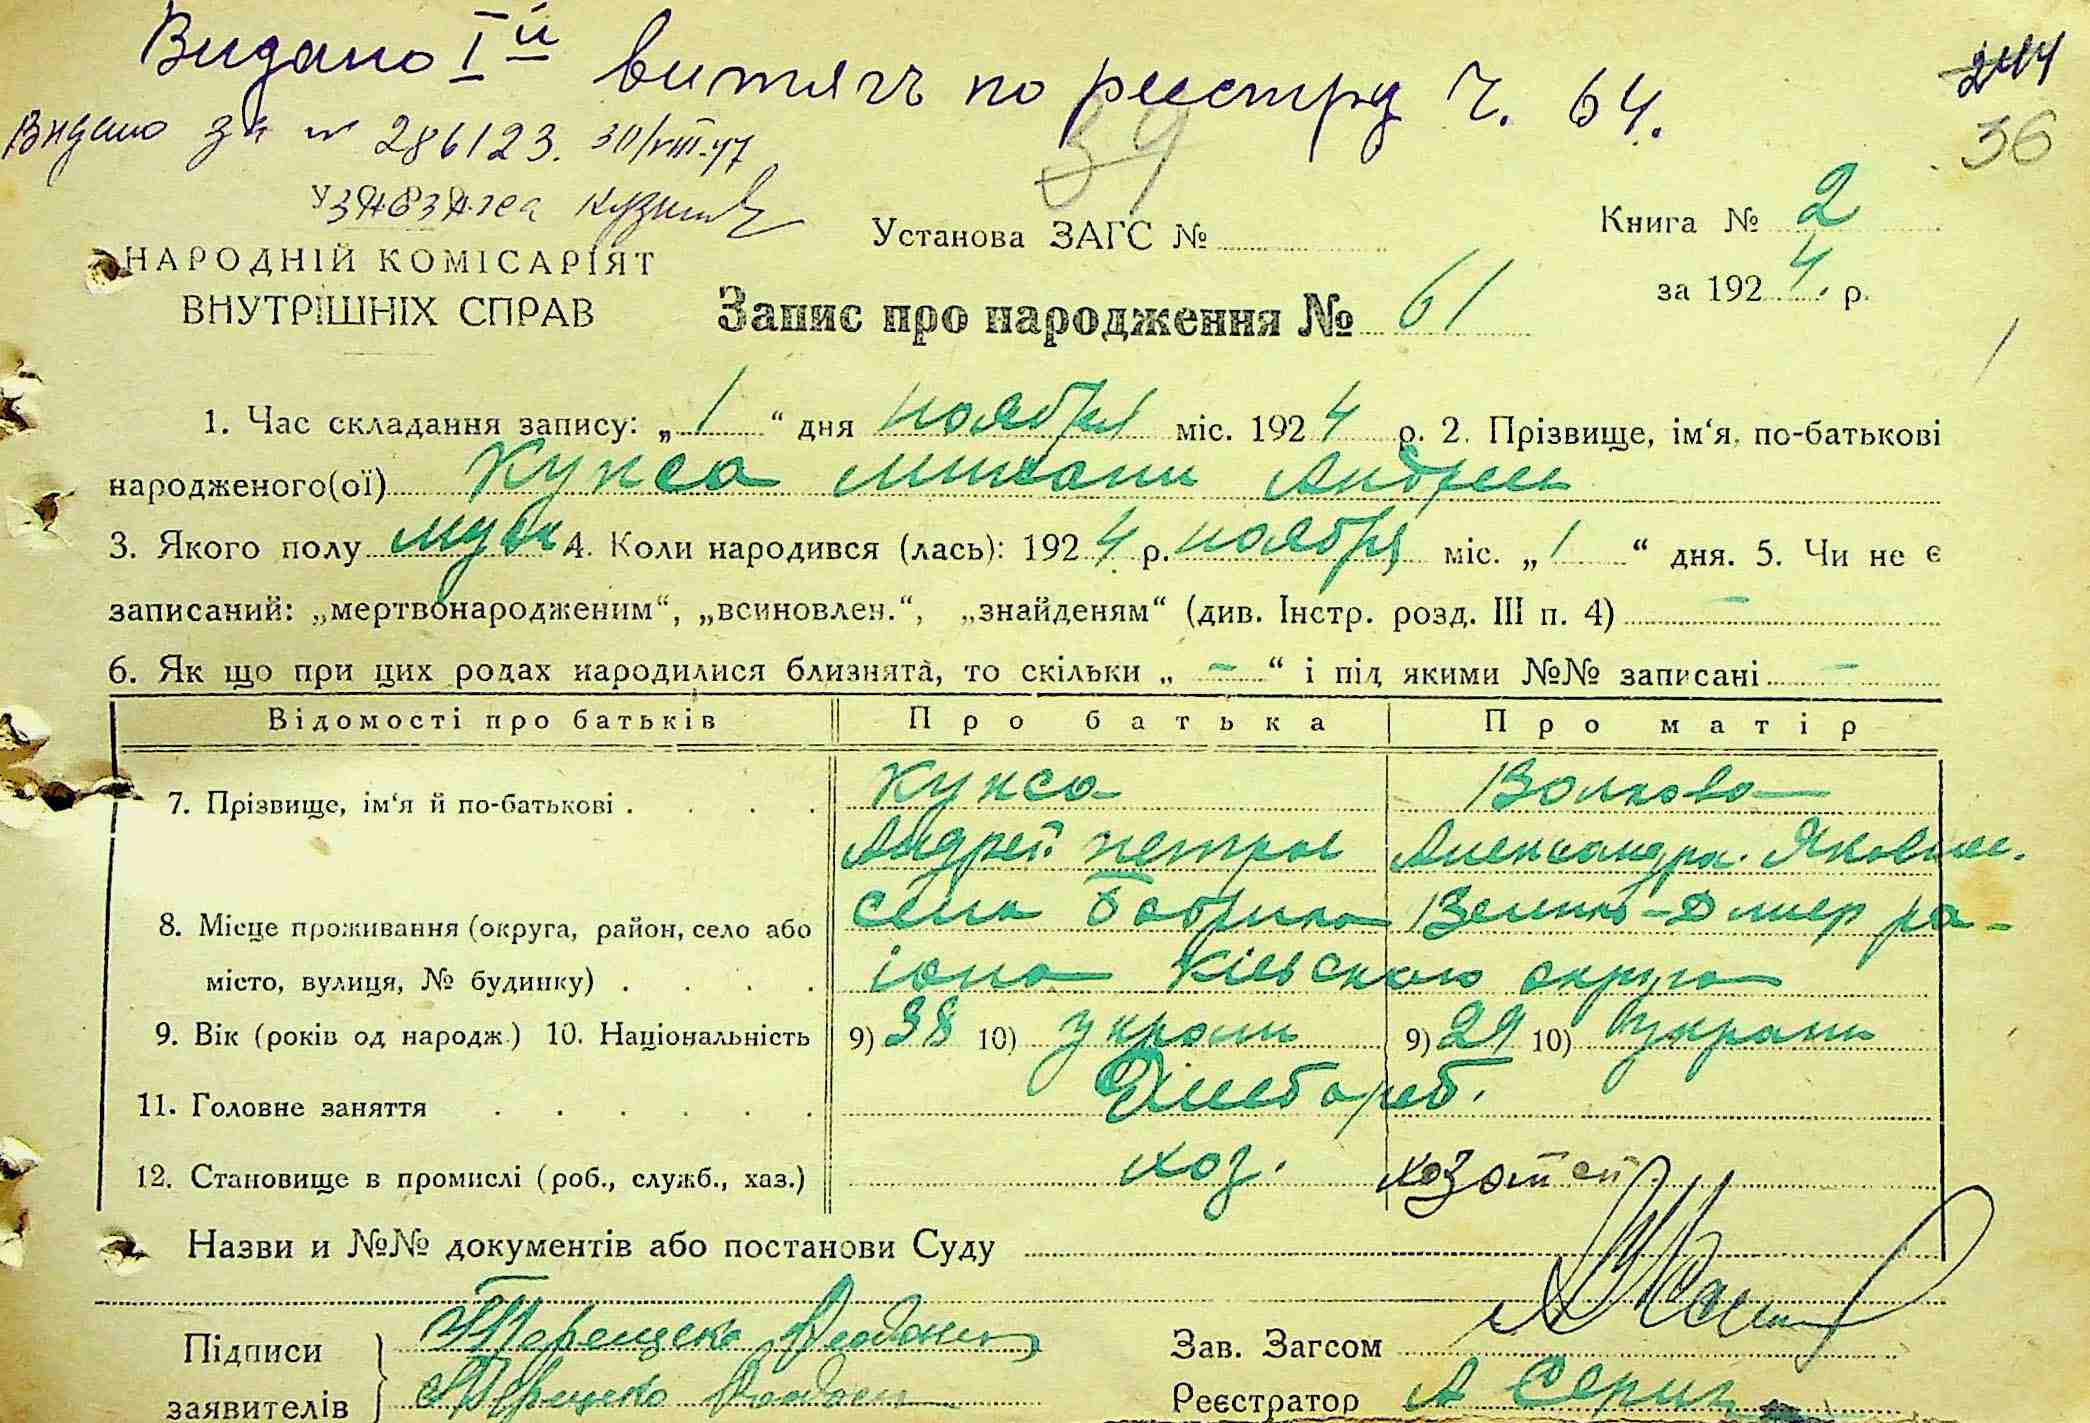 Видано Iй витяг по реєстру Ч. 64.
244
Видано за № 286123. 30/VIII-47
39
36
Установа ЗАГС №
Книга № 2
НАРОДНІЙ КОМІСАРІЯТ
ВНУТРІШНІХ СПРАВ
за 1924. р.
Запис про народження № 61
1. Час складання запису: „1“ дня ноября міс. 1924 р. 2. Прізвище, ім‘я, по-батькові
народженого(ої) Кукса Михаил Андреев
3. Якого полу муж 4. Коли народився (лась): 1924 р. ноября міс. „1“ дня. 5. Чи не є
записаний: „мертвонародженим“, „всиновлен.“, „знайденям“ (див. Інстр. розд. III п. 4) –
6. Як що при цих родах народилися близнята, то скільки „ – “ і під якими №№ записані –
Відомості про батьків Про батька Про матір
7. Прізвище, ім‘я й по-батькові . . . . Кукса Волкова
Андрей Петров Александра Яковлев.
8. Місце проживання (округа, район, село або село Бобрика Велико-Димер ра-
місто, вулиця, № будинку) . . . . іона Київского округа
9. Вік (років од народж.) 10. Національність 9) 38 10) украин 9) 29 10) украин
11. Головне заняття . . . . . . Хлебороб.
12. Становище в промислі (роб., служб., хаз.) хоз.
Назви и №№ документів або постанови Суду
Підписи
заявителів
Зав. Загсом
Реєстратор А